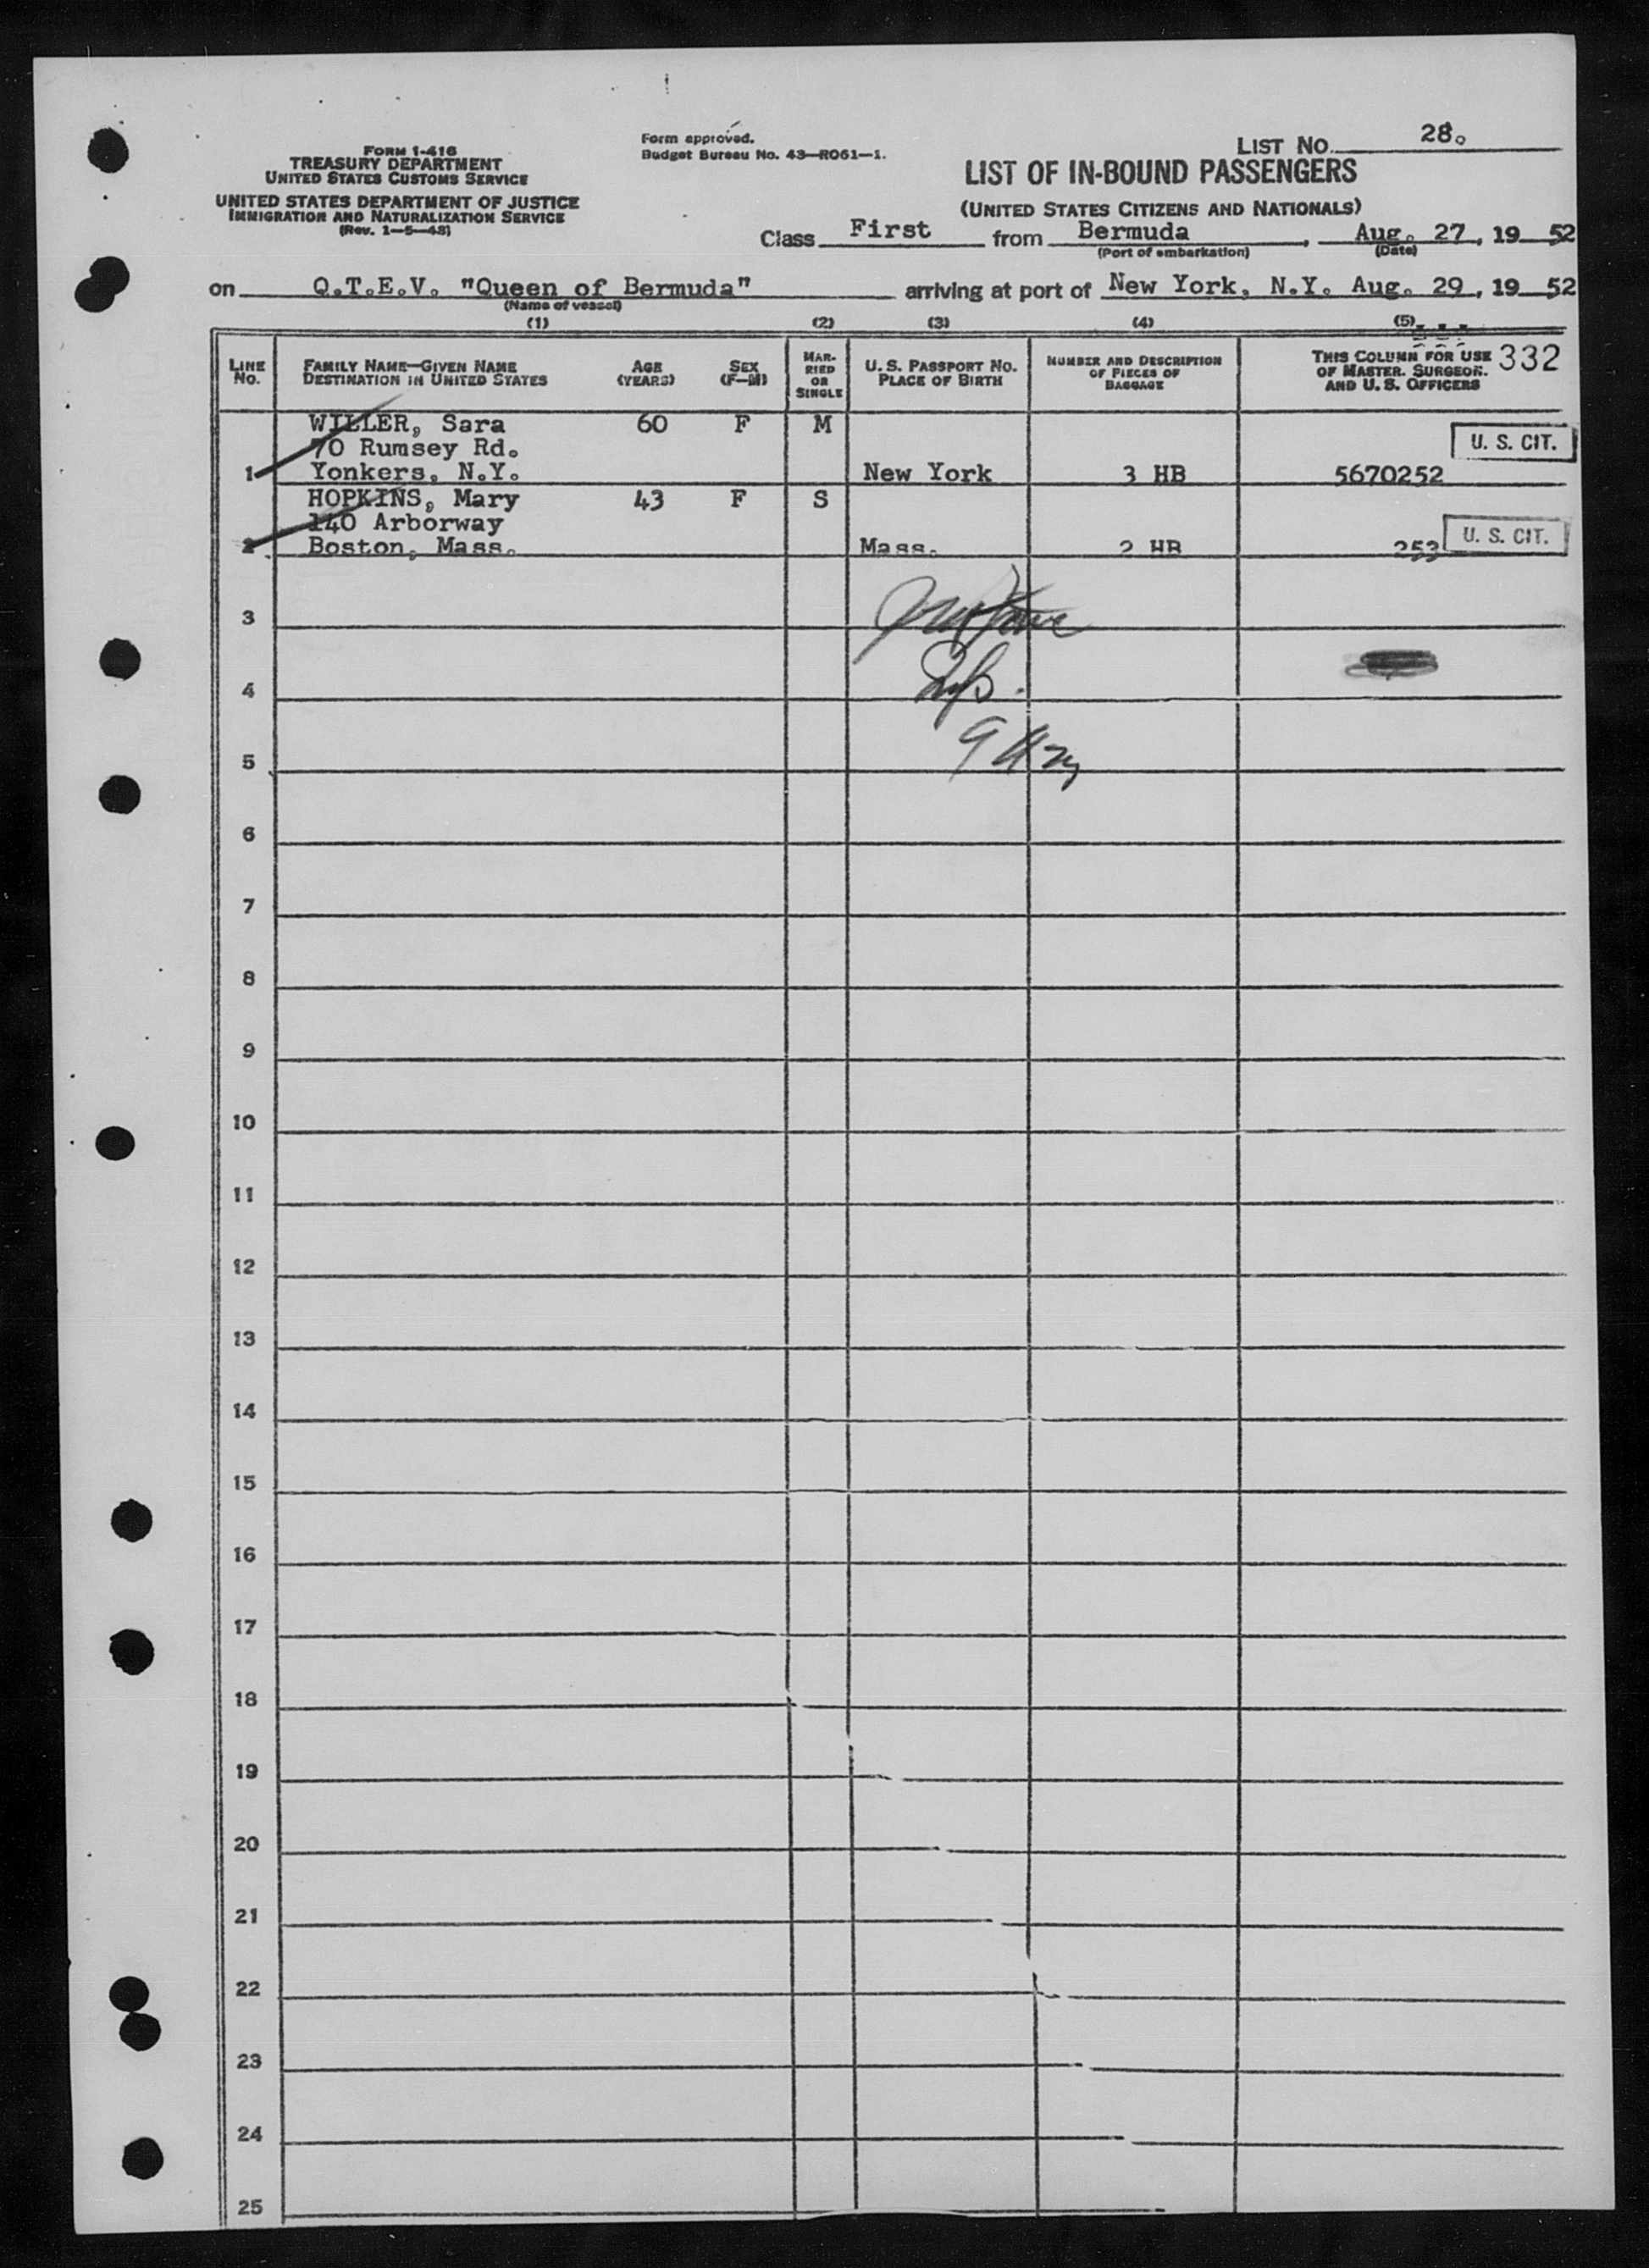 Form 1-416
TREASURY DEPARTMENT
UNITED STATES CUSTOMS SERVICE
UNITED STATES DEPARTMENT OF JUSTICE
IMMIGRATION AND NATURALIZATION SERVICE
(Rev. 1-5-48)
Form approved.
Budget Bureau No. 43-R061-1.
LIST No. 28.
LIST OF IN-BOUND PASSENGERS
(UNITED STATES CITIZENS AND NATIONALS)
Class First from Bermuda, Aug. 27, 19 52
(Port of embarkation) (Date)
on Q.T.E.V. "Queen of Bermuda" arriving at port of New York, N.Y. Aug. 29, 19 52
(Name of vessel)
(1) (2) (3) (4) (5)
LINE No. FAMILY NAME—GIVEN NAME DESTINATION IN UNITED STATES AGE (YEARS) SEX (F-M) MARRIED OR SINGLE U. S. PASSPORT No. PLACE OF BIRTH NUMBER AND DESCRIPTION OF PIECES OF BAGGAGE THIS COLUMN FOR USE OF MASTER, SURGEON, AND U. S. OFFICERS 332
WILLER, Sara 60 F M
70 Rumsey Rd. U. S. CIT.
1 Yonkers, N.Y. New York 3 HB 5670252
HOPKINS, Mary 43 F S
140 Arborway
2 Boston, Mass. Mass. 2 HB 253 U. S. CIT.
3
4
5
6
7
8
9
10
11
12
13
14
15
16
17
18
19
20
21
22
23
24
25